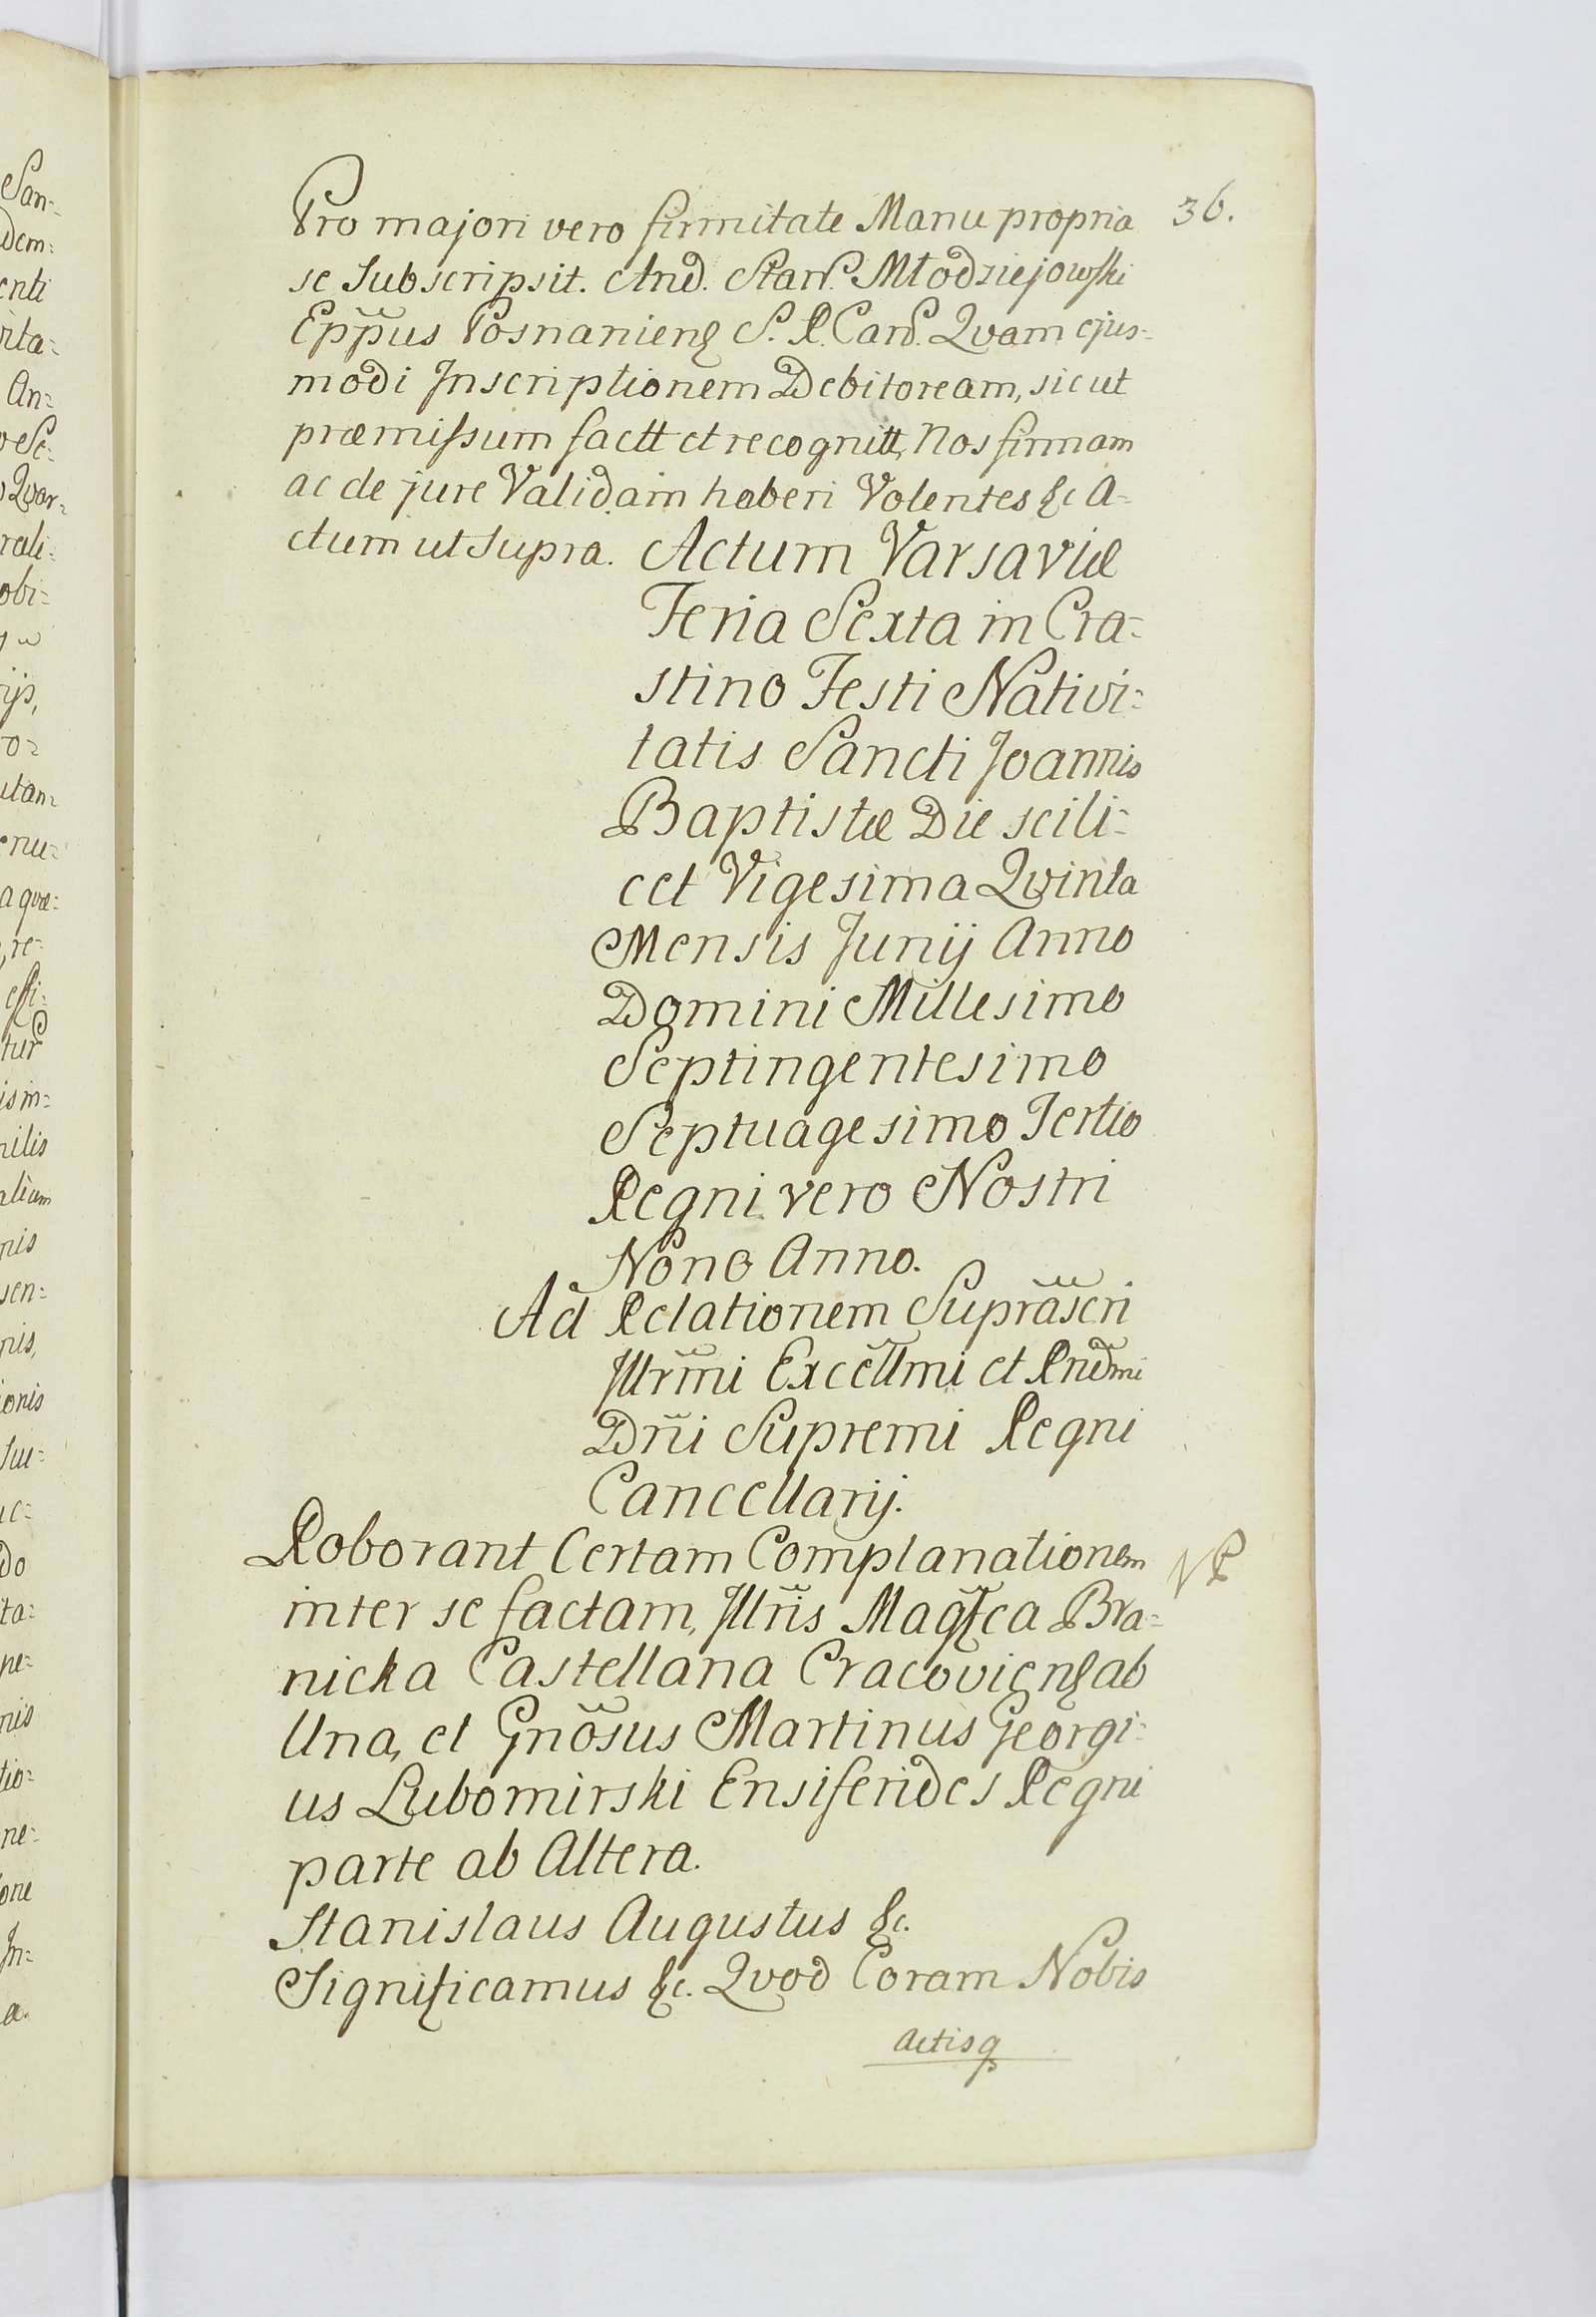 36.
Pro majori vero firmitate Manu propria
se Subscripsit. And. Stan. Młodziejowski
Epp̃us Posnanienẽ S. R. Canc. Qvam ejus=
modi Inscriptionem Debitoream, sicut
præmissum factt et recognitt, Nos firmam
ac de jure Validam haberi Volentes &c A=
ctum ut Supra. Actum Varsaviæ
Feria Sexta in Cra=
stino Festi Nativi=
tatis Sancti Joannis
Baptistæ Die scili=
cet Vigesima Qvinta
Mensis Junij Anno
Domini Millesimo
Septingentesimo
Septuagesimo Tertio
Regni vero Nostri
Nono Anno.
Ad Relationem Suprãscri
Illrm̃i Excellm̃i et Rndm̃i
Dñi Supremi Regni
Cancellarij.
Roborant Certam Complanationem
inter se factam, Illris Magfca Bra=
nicka Castellana Cracoviens ab
Una, et Gnõsus Martinus Georgi=
us Lubomirski Ensiferides Regni
parte ab Altera.
Stanislaus Augustus &c.
Significamus &c. Qvod Coram Nobis
actisq